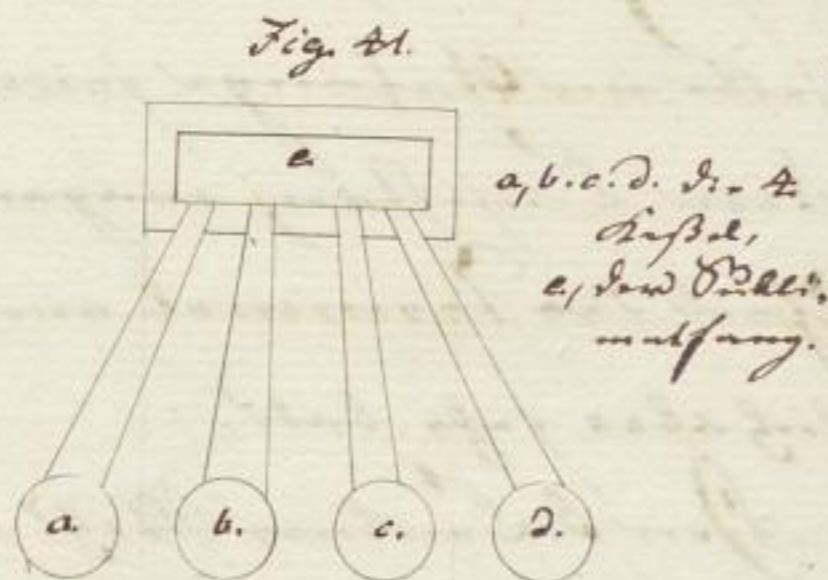 Fig. 41.
e.
a, b. c. d. die 4
Keßel,
e, der Subli-
matfang.
a.
b.
c.
d.